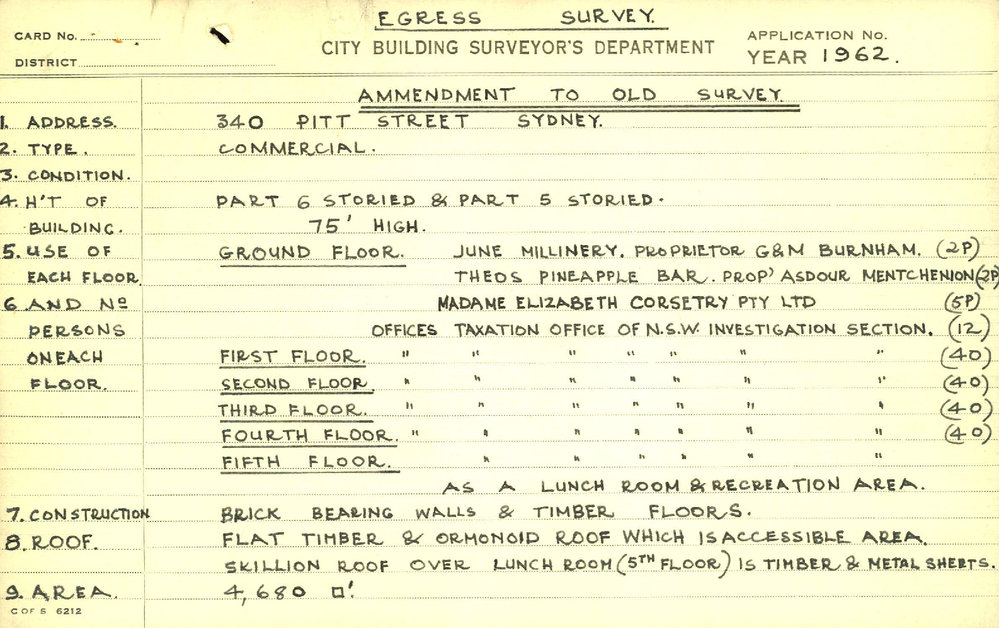 EGRESS SURVEY.
CARD No.
CITY BUILDING SURVEYOR'S DEPARTMENT
APPLICATION No.
DISTRICT
YEAR 1962.
AMMENDMENT TO OLD SURVEY.
1. ADDRESS. 340 PITT STREET SYDNEY.
2. TYPE. COMMERCIAL.
3. CONDITION.
4. H'T OF PART 6 STORIED & PART 5 STORIED.
BUILDING. 75' HIGH.
5. USE OF GROUND FLOOR. JUNE MILLINERY. PROPRIETOR G&M BURNHAM. (2P)
EACH FLOOR. THEOS PINEAPPLE BAR. PROP' ASDOUR MENTCHENION (2P)
6 AND No MADAME ELIZABETH CORSETRY PTY LTD (5P)
PERSONS OFFICES TAXATION OFFICE OF N.S.W. INVESTIGATION SECTION. (12)
ON EACH FIRST FLOOR. " " " " " " " (40)
FLOOR. SECOND FLOOR " " " " " " " (40)
THIRD FLOOR. " " " " " " " (40)
FOURTH FLOOR. " " " " " " " (40)
FIFTH FLOOR. " " " " " "
AS A LUNCH ROOM & RECREATION AREA.
7. CONSTRUCTION BRICK BEARING WALLS & TIMBER FLOORS.
8. ROOF. FLAT TIMBER & ORMONOID ROOF WHICH IS ACCESSIBLE AREA.
SKILLION ROOF OVER LUNCH ROOM (5TH FLOOR) IS TIMBER & METAL SHEETS.
9. AREA. 4,680 □'.
C OF S 6212